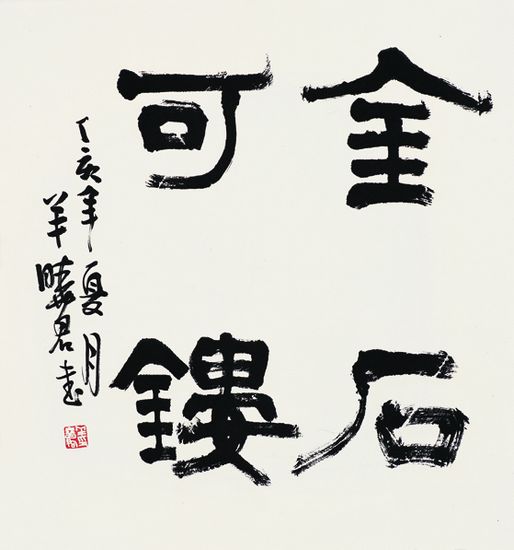 金石
可鏤
丁亥年夏月
羊曉君書